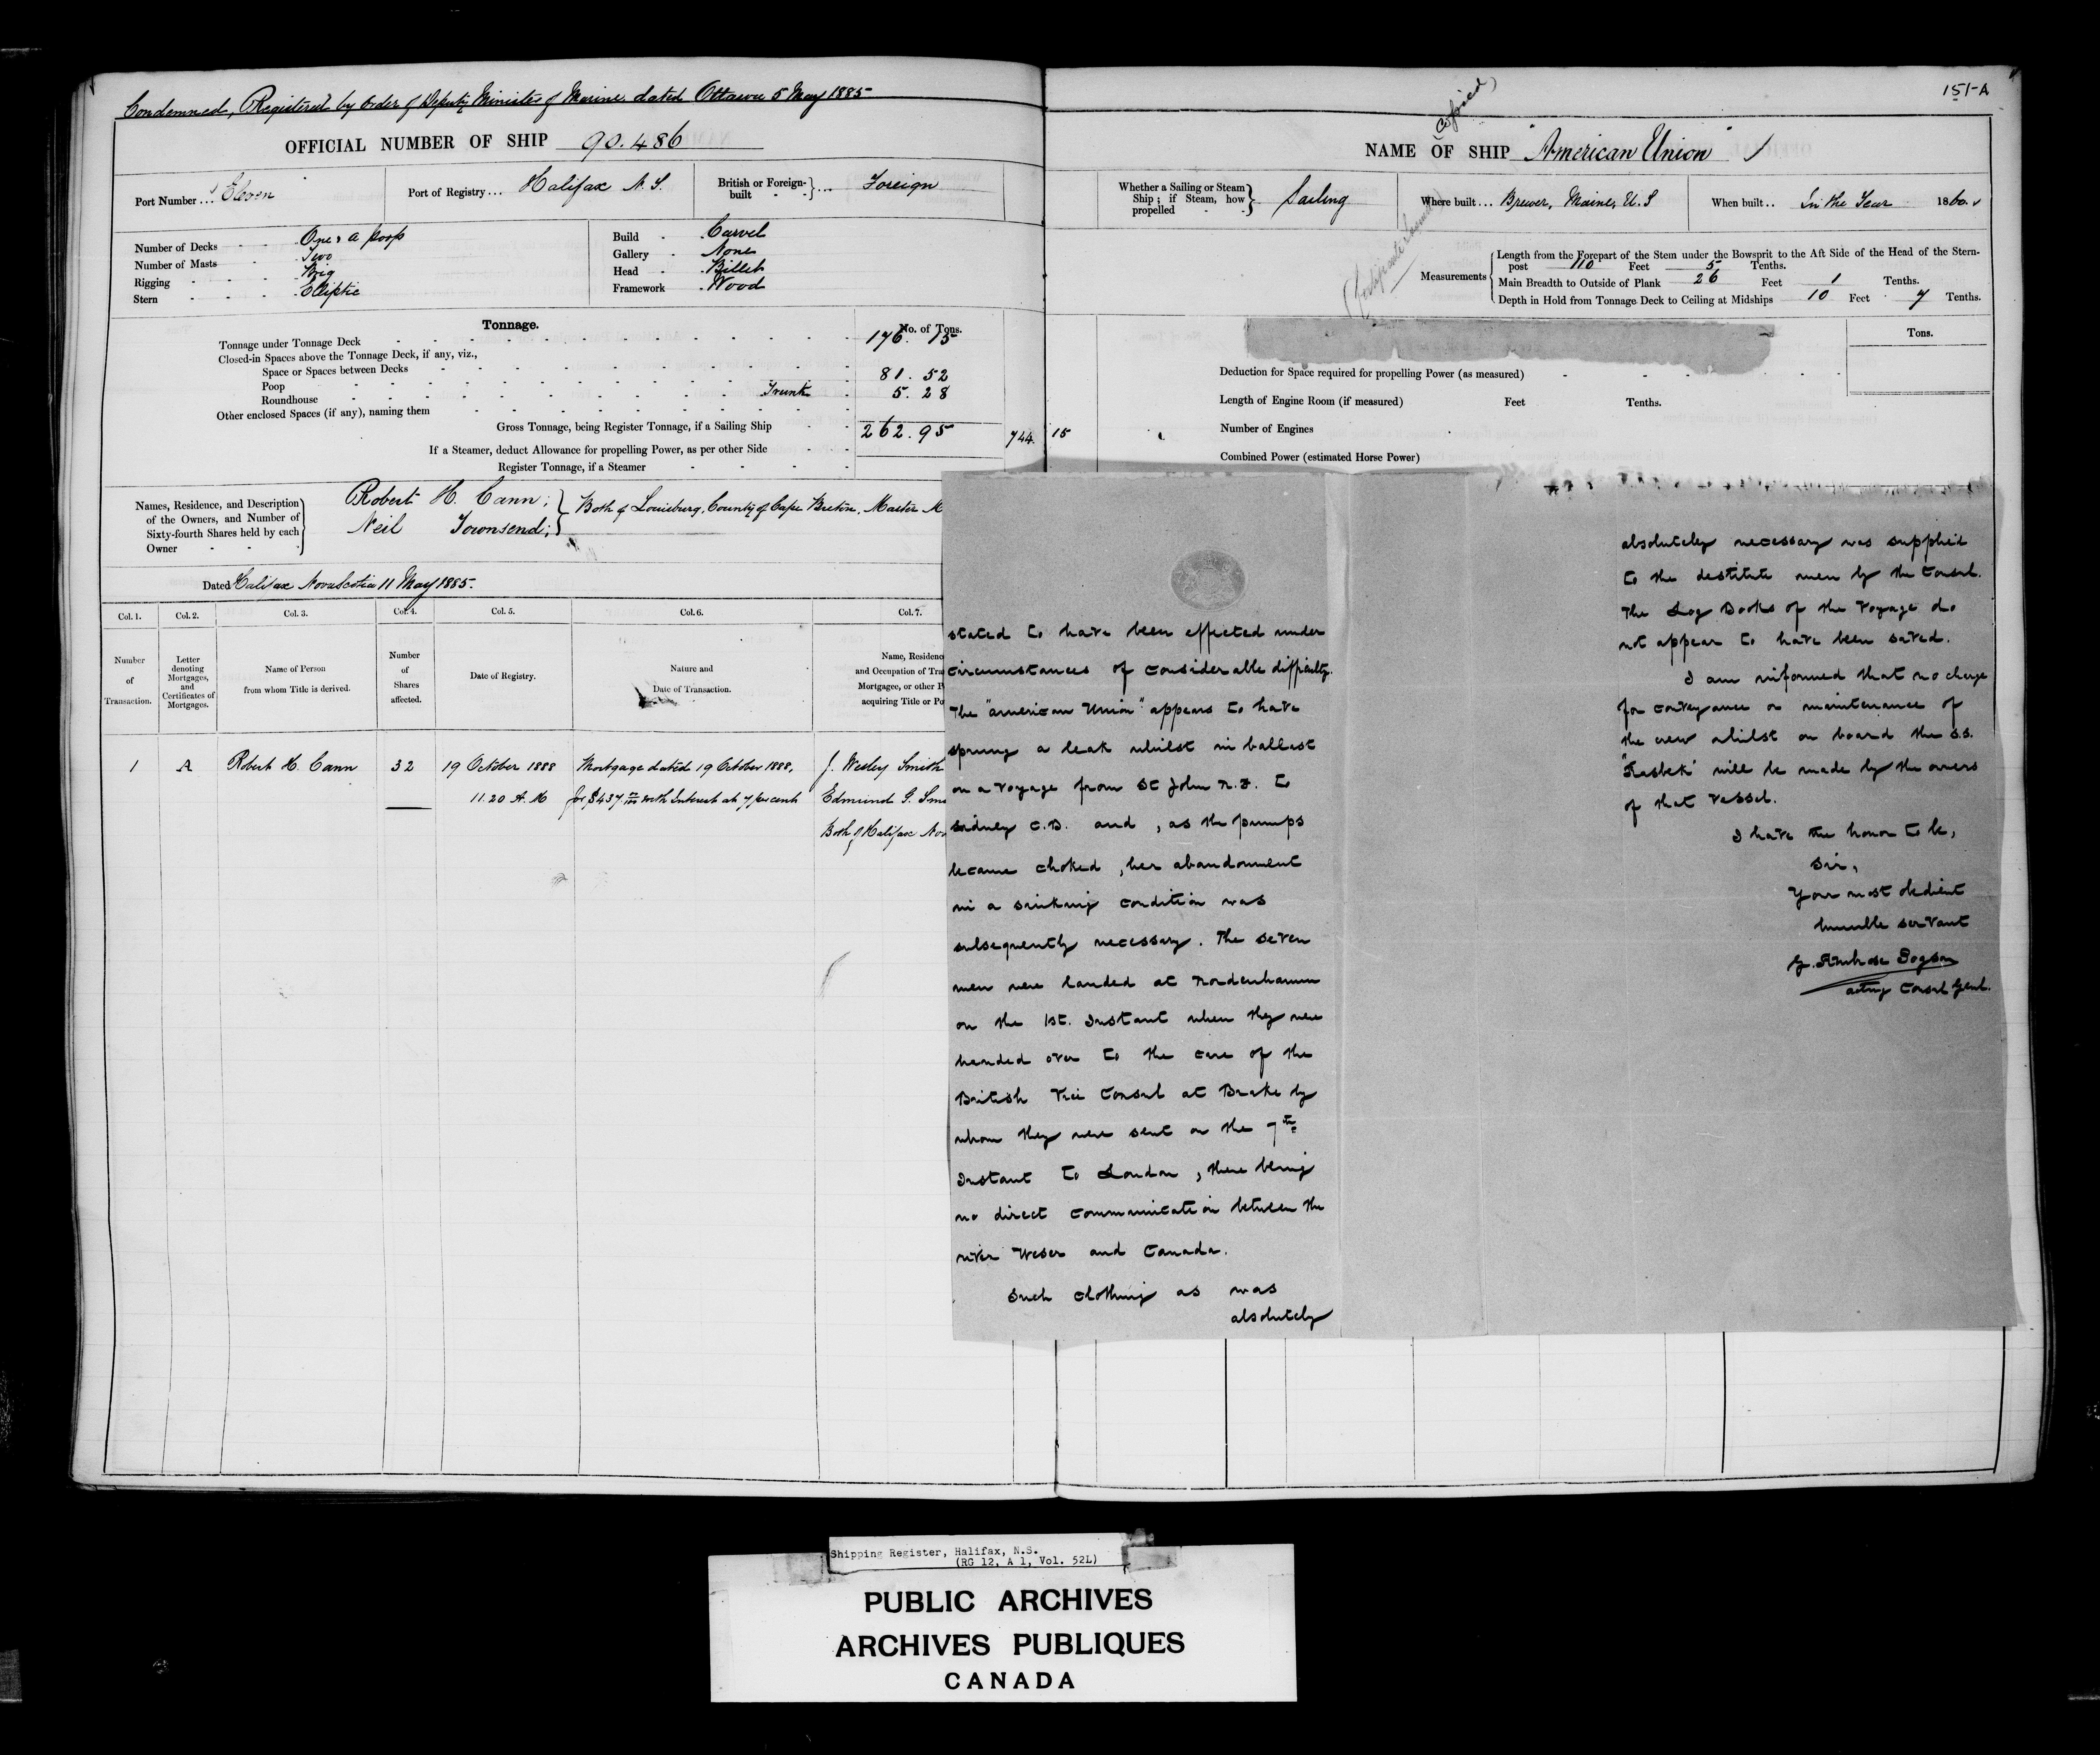 Condemned, Registered by order of Deputy Minister of Marine dated Ottawa 5 May 1885
OFFICIAL NUMBER OF SHIP 90.486
Port Number ... Eleven
Port of Registry ... Halifax N.S.
British or Foreign-built } ... Foreign
Number of Decks One & a Poop
Number of Masts Two
Rigging Brig
Stern Elliptic
Build Carvel
Gallery None
Head Billet
Framework Wood
Tonnage.
No. of Tons.
Tonnage under Tonnage Deck 176.15
Closed-in Spaces above the Tonnage Deck, if any, viz.,
Space or Spaces between Decks
Poop 81.52
Roundhouse Trunk 5.28
Other enclosed Spaces (if any), naming them
Gross Tonnage, being Register Tonnage, if a Sailing Ship 262.95
744.15
If a Steamer, deduct Allowance for propelling Power, as per other Side
Register Tonnage, if a Steamer
Names, Residence, and Description of the Owners, and Number of Sixty-fourth Shares held by each Owner
Robert H. Cann;
Neil Townsend;
Both of Louisburg, County of Cape Breton, Master M
Dated Halifax Nova Scotia 11 May 1885.
Col. 1. Col. 2. Col. 3. Col. 4. Col. 5. Col. 6. Col. 7.
Number of Transaction.
Letter denoting Mortgages, and Certificates of Mortgages.
Name of Person from whom Title is derived.
Number of Shares affected.
Date of Registry.
Nature and Date of Transaction.
Name, Residenc
and Occupation of Tra
Mortgagee, or other P
acquiring Title or Po
1 A Robert H. Cann 32 19 October 1888 Mortgage dated 19 October 1888, J. Wesley Smith
11.20 A.M for $437 with Interest at 7 per cent Edmund G. Smi
Both of Halifax Nov
151-A
(copied)
NAME OF SHIP "American Union"
Whether a Sailing or Steam Ship; if Steam, how propelled } Sailing
Where built ... Brewer, Maine, U.S
When built .. In the Year 1860.
Measurements
Length from the Forepart of the Stem under the Bowsprit to the Aft Side of the Head of the Stern-
post 110 Feet 5 Tenths.
Main Breadth to Outside of Plank 26 Feet 1 Tenths.
Depth in Hold from Tonnage Deck to Ceiling at Midships 10 Feet 7 Tenths.
Tons.
Deduction for Space required for propelling Power (as measured)
Length of Engine Room (if measured) Feet Tenths.
Number of Engines
Combined Power (estimated Horse Power)
stated to have been effected under
circumstances of considerable difficulty.
The "American Union" appears to have
sprung a leak whilst in ballast
on a voyage from St John N.F. to
Sidney C.B. and, as the pumps
became choked, her abandonment
in a sinking condition was
subsequently necessary. The seven
men were landed at Nordenhamm
on the 1st. Instant when they were
handed over to the care of the
British Vice Consul at Brake by
whom they were sent on the 7th
Instant to London, there being
no direct communication between the
river Weser and Canada.
Such clothing as was
absolutely
absolutely necessary was supplied
to the destitute men by the Consul.
The Log Books of the Voyage do
not appear to have been saved.
I am informed that no charge
for conveyance or maintenance of
the crew whilst on board the s.s.
"Kasbek" will be made by the owners
of that vessel.
I have the honor to be,
Sir,
Your most obedient
humble servant
G. Ambrose Pogson
acting Consul Genl.
Shipping Register, Halifax, N.S.
(RG 12, A 1, Vol. 52L)
PUBLIC ARCHIVES
ARCHIVES PUBLIQUES
CANADA